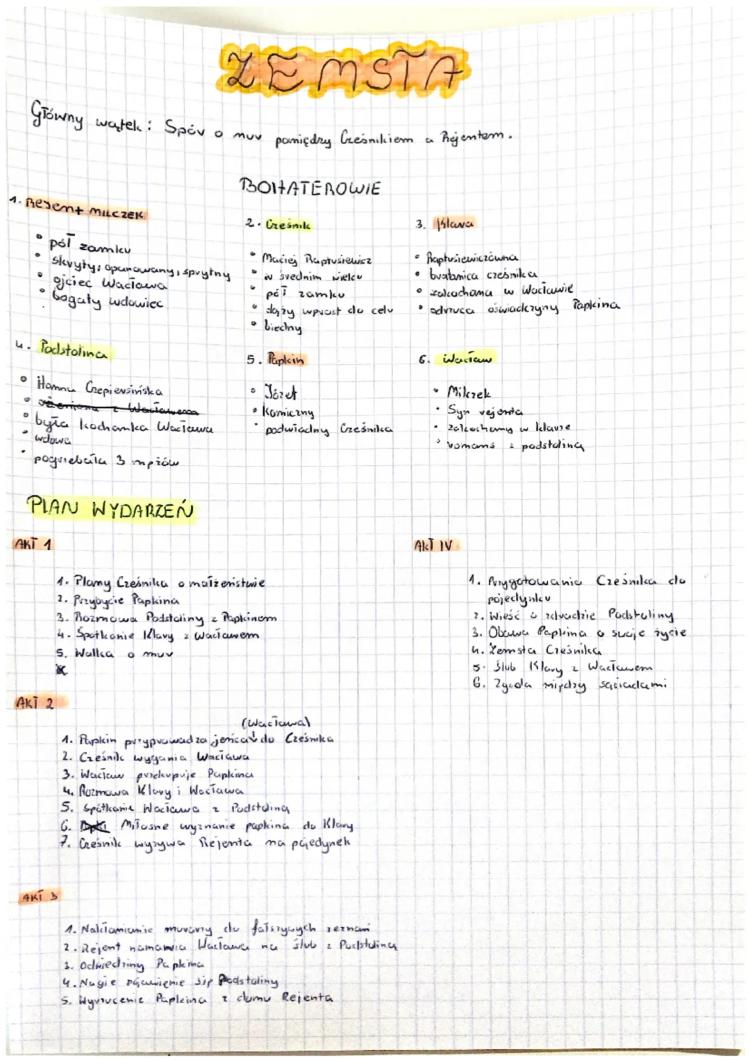 ZEMSTA
Główny wątek: Spór o mur pomiędzy Cześnikiem a Rejentem.
BOHATEROWIE
1. Rejent MILCZEK
• pół zamku
• skryty, opanowany, sprytny
• ojciec Wacława
• bogaty wdowiec
2. Cześnik
• Maciej Raptusiewicz
• w średnim wieku
• pół zamku
• dąży wprost do celu
• biedny
3. Klara
• Raptusiewiczówna
• bratanica cześnika
• zakochana w Wacławie
• odrzuca oświadczyny Papkina
4. Podstolina
• Hanna Czepiersińska
• była kochanka Wacława
• wdowa
• pogrzebała 3 mężów
5. Papkin
• Józef
• komiczny
• podwładny Cześnika
6. Wacław
• Milczek
• Syn rejenta
• zakochany w klarze
• romans z podstoliną
PLAN WYDARZEŃ
AKT 1
1. Plany Cześnika o małżeństwie
2. Przybycie Papkina
3. Rozmowa Podstoliny z Papkinem
4. Spotkanie Klary z Wacławem
5. Walka o mur
AKT 2
(Wacława)
1. Papkin przyprowadza jeńca do Cześnika
2. Cześnik wygania Wacława
3. Wacław przekupuje Papkina
4. Rozmowa Klary i Wacława
5. Spotkanie Wacława z Podstoliną
6. Miłosne wyznanie papkina do Klary
7. Cześnik wyzywa Rejenta na pojedynek
AKT 3
1. Nakłamianie murarzy do fałszywych zeznań
2. Rejent namawia Wacława na ślub z Podstoliną
3. Odwiedziny Papkina
4. Nagłe pojawienie się Podstoliny
5. Wyrzucenie Papkina z domu Rejenta
AKT IV
1. Przygotowania Cześnika do
pojedynku
2. Wieść o zdradzie Podstoliny
3. Obawa Papkina o swoje życie
4. Zemsta Cześnika
5. Ślub Klary z Wacławem
6. Zgoda między sąsiadami